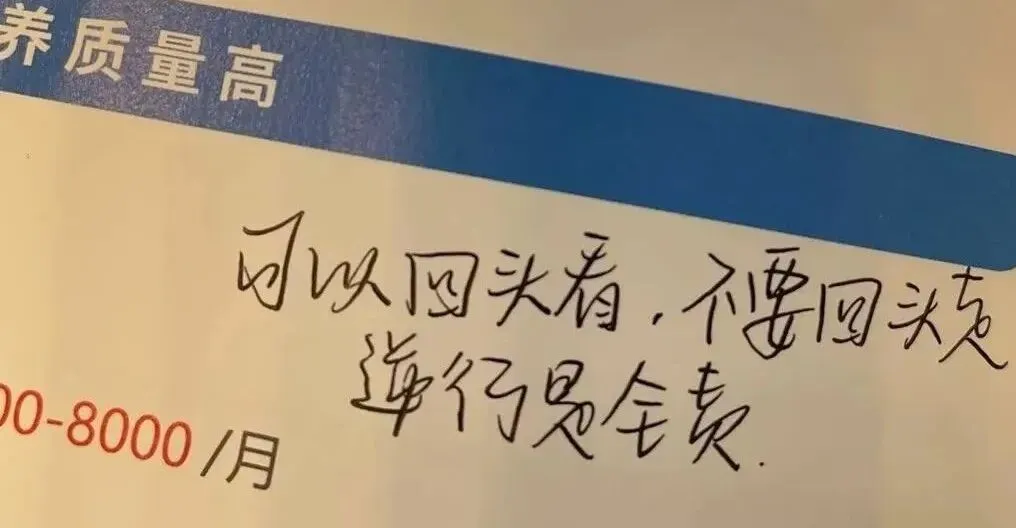 养质量高
可以回头看,不要回头走
逆行是全责.
00-8000/月